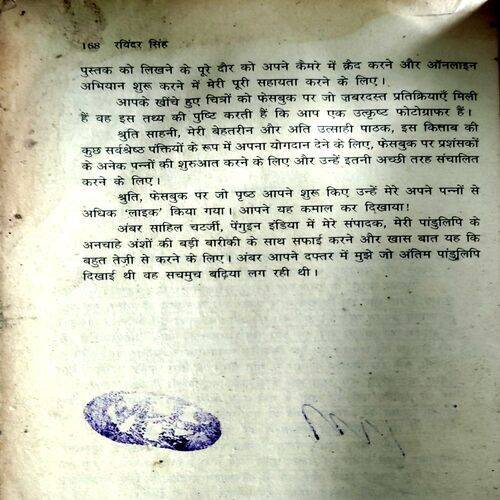 168 रविंदर सिंह
पुस्तक को लिखने के पूरे दौर को अपने कैमरे में क़ैद करने और ऑनलाइन
अभियान शुरू करने में मेरी पूरी सहायता करने के लिए।
आपके खींचे हुए चित्रों को फेसबुक पर जो ज़बरदस्त प्रतिक्रियाएँ मिली
हैं वह इस तथ्य की पुष्टि करती हैं कि आप एक उत्कृष्ट फोटोग्राफर हैं।
श्रुति साहनी, मेरी बेहतरीन और अति उत्साही पाठक, इस किताब की
कुछ सर्वश्रेष्ठ पंक्तियों के रूप में अपना योगदान देने के लिए, फेसबुक पर प्रशंसकों
के अनेक पन्नों की शुरुआत करने के लिए और उन्हें इतनी अच्छी तरह संचालित
करने के लिए।
श्रुति, फेसबुक पर जो पृष्ठ आपने शुरू किए उन्हें मेरे अपने पन्नों से
अधिक ‘लाइक’ किया गया। आपने यह कमाल कर दिखाया!
अंबर साहिल चटर्जी, पेंगुइन इंडिया में मेरे संपादक, मेरी पांडुलिपि के
अनचाहे अंशों की बड़ी बारीकी के साथ सफाई करने और खास बात यह कि
बहुत तेज़ी से करने के लिए। अंबर आपने दफ्तर में मुझे जो अंतिम पांडुलिपि
दिखाई थी वह सचमुच बढ़िया लग रही थी।